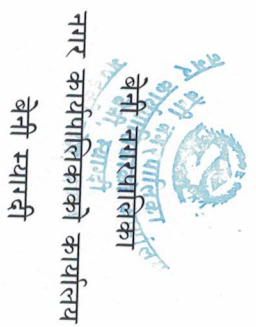 बेनी नगरपालिका
नगर कार्यपालिकाको कार्यालय
बेनी म्याग्दी